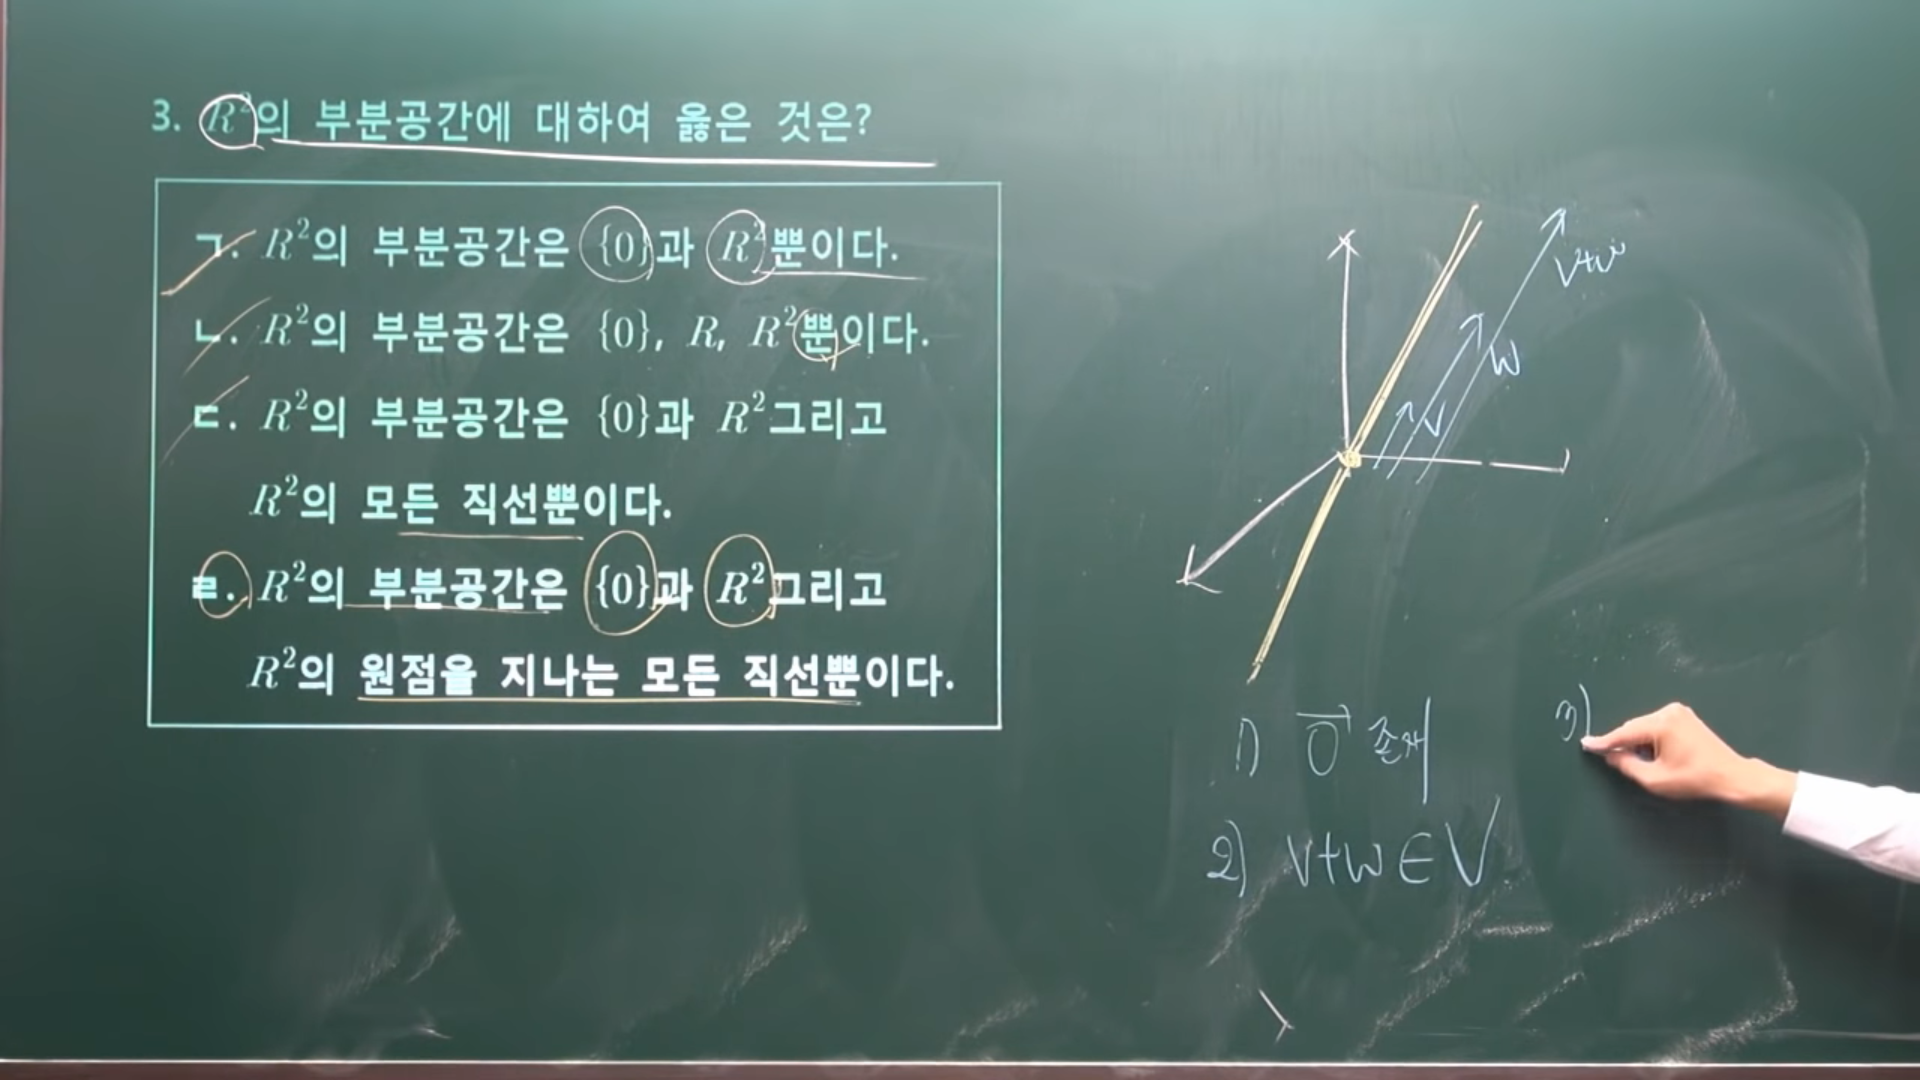 3. R²의 부분공간에 대하여 옳은 것은?
ㄱ. R²의 부분공간은 {0}과 R²뿐이다.
ㄴ. R²의 부분공간은 {0}, R, R²뿐이다.
ㄷ. R²의 부분공간은 {0}과 R²그리고
R²의 모든 직선뿐이다.
ㄹ. R²의 부분공간은 {0}과 R²그리고
R²의 원점을 지나는 모든 직선뿐이다.
v+w
w
v
1) 0⃗ 존재
2) v+w∈V
3)